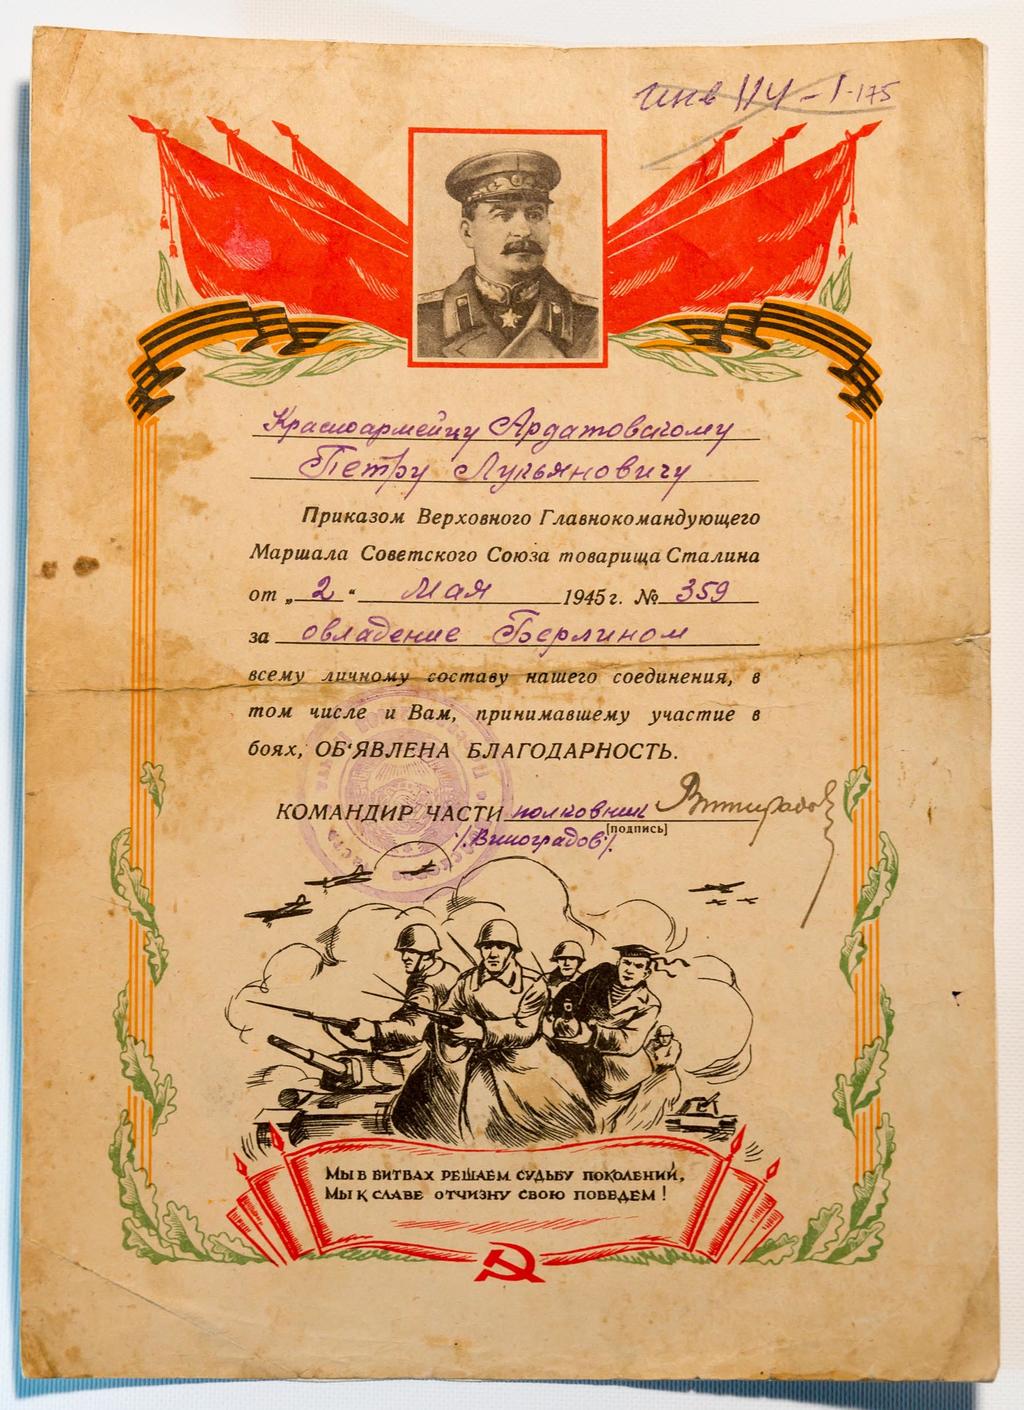 инв НЧ-1-175
Красноармейцу Ардатовскому
Петру Лукьяновичу
Приказом Верховного Главнокомандующего
Маршала Советского Союза товарища Сталина
от „ 2 “ Мая 1945 г. № 359
за овладение Берлином
всему личному составу нашего соединения, в
том числе и Вам, принимавшему участие в
боях, ОБ'ЯВЛЕНА БЛАГОДАРНОСТЬ.
КОМАНДИР ЧАСТИ полковник
[подпись]
/Виноградов/.
Мы в битвах решаем судьбу поколений,
Мы к славе отчизну свою поведем!